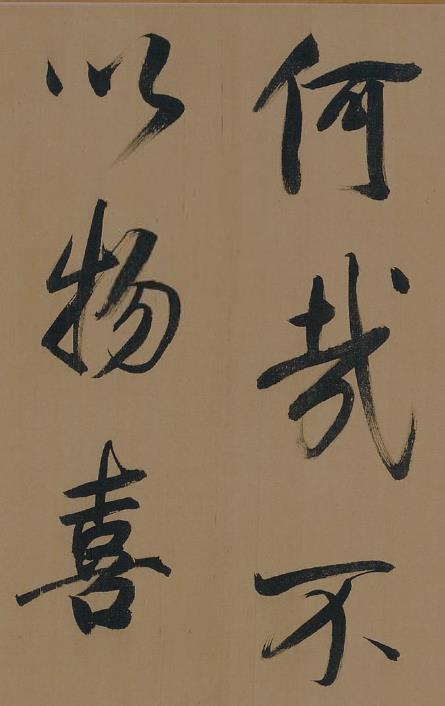 何哉不
以物喜